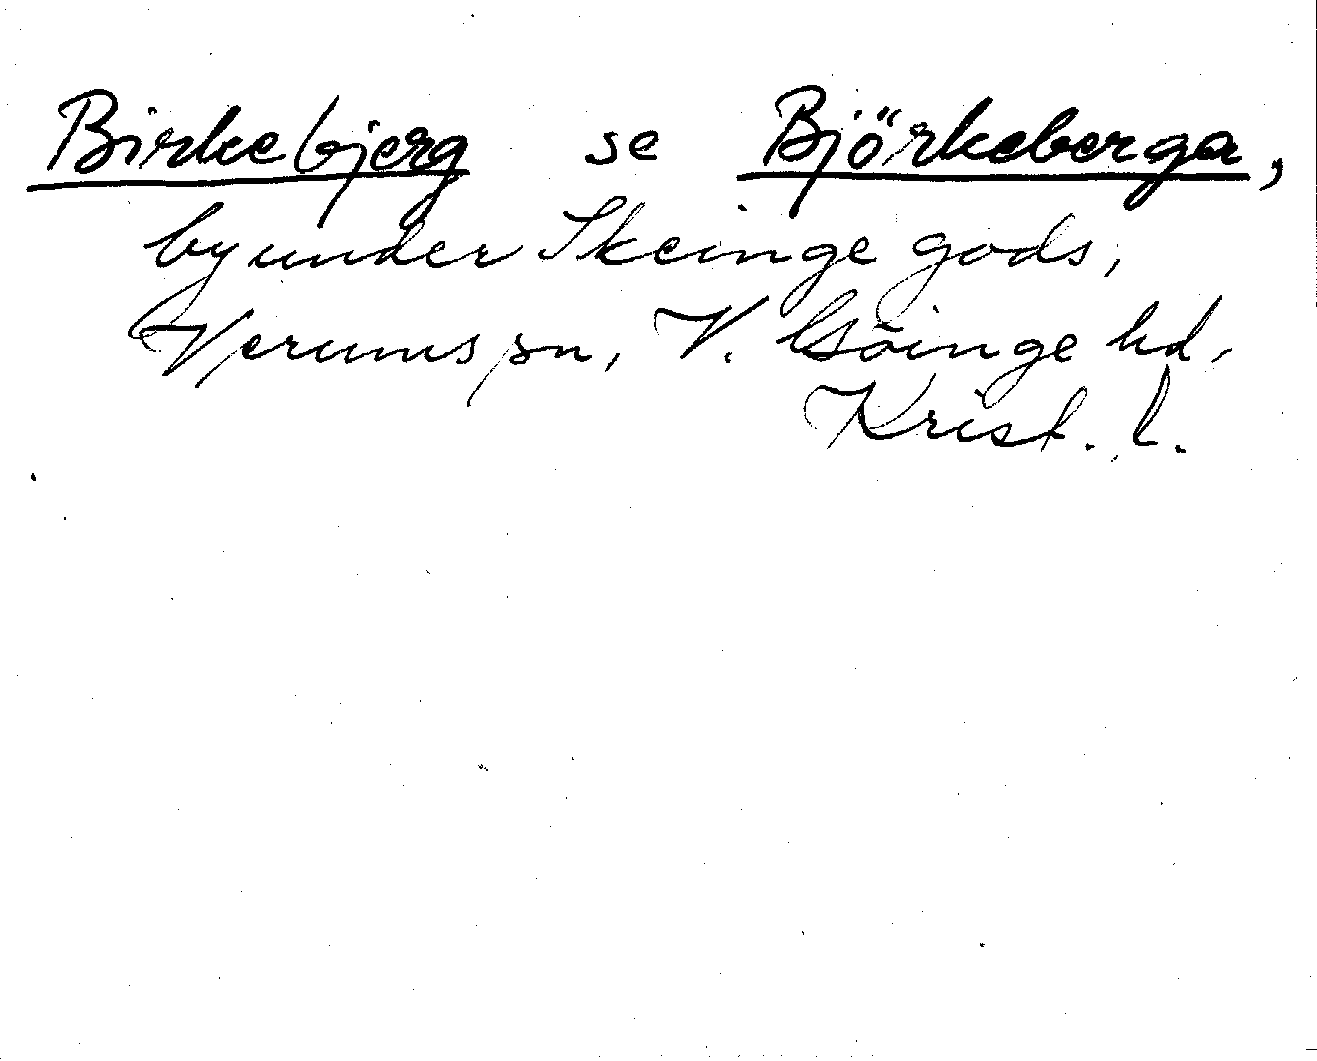 Birkebjerg se Björkeberga,
by under Skeinge gods,
Verums sn, V. Göinge hd,
Krist. l.